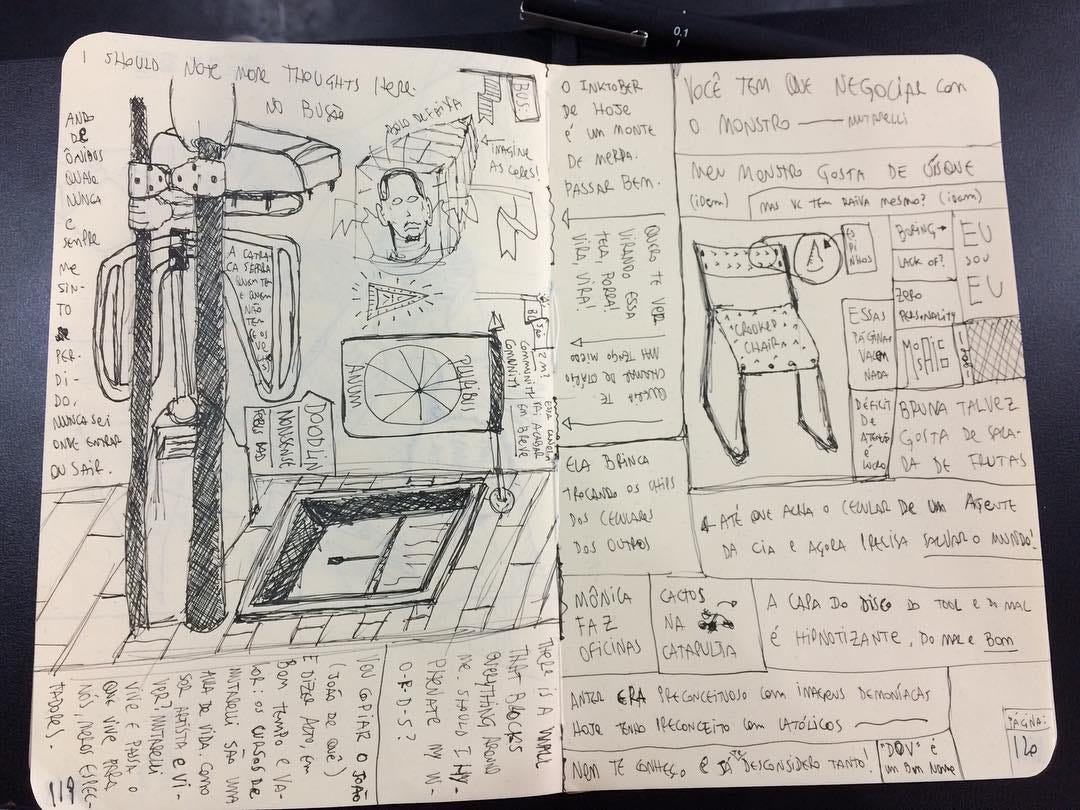 I SHOULD NOTE MORE THOUGHTS HERE.
NO BUSÃO
ANDO
DE
ÔNIBUS
QUASE
NUNCA
E
SEMPRE
ME
SIN-
TO
PER-
DI-
DO,
NUNCA SEI
ONDE ENTRAR
OU SAIR.
BUS:
IMAGINE
AS CORES!
A CATRA-
CA SEPARA
QUEM TEM
E QUEM
NÃO
TEM
DOODLIN
NONSENSE
FEELS BAD
PLURIBUS
ANUM
COMMUNITY
ESSA CANETA
VAI ACABAR
EM BREVE
THERE IS A WALL
THAT BLOCKS
EVERYTHING AROUND
ME. SHOULD I HY-
PHENATE MY W-
O-R-D-S?
VOU COPIAR O JOÃO
(JOÃO DE QUÊ?)
E DIZER ALTO, EM
BOM TEMPO E VA-
LOR: OS CURSOS DE
MUTARELLI SÃO UMA
AULA DE VIDA. COMO
SER ARTISTA E VI-
VER? MUTARELLI
VIVE E PASSA O
QUE VIVE PARA
NÓS, MEROS ESPEC-
TADORES.
119
O INKTOBER
DE HOJE
É UM MONTE
DE MERDA.
PASSAR BEM.
QUERO TE VER
VIRANDO ESSA
TECA, PORRA!
VIRA, VIRA!
QUERIA TE
CHAMAR DE OTÁRIO
MAS TENHO MEDO
ELA BRINCA
TROCANDO OS CHIPS
DOS CELULARES
DOS OUTROS
VOCÊ TEM QUE NEGOCIAR COM
O MONSTRO — MUTARELLI
MEU MONSTRO GOSTA DE UÍSQUE
(IDEM)
MAS VC TEM RAIVA MESMO? (IDEM)
ES
PI
NHOS
BORING →
LACK OF?
ZERO
PERSONALITY
EU
SOU
EU
CROOKED
CHAIR
ESSAS
PÁGINAS
VALEM
NADA
DÉFICIT
DE
ATENÇÃO
É
LUCRO
BRUNA TALVEZ
GOSTA DE SALA-
DA DE FRUTAS
ATÉ QUE ACHA O CELULAR DE UM AGENTE
DA CIA E AGORA PRECISA SALVAR O MUNDO!
MÔNICA
FAZ
OFICINAS
CACTOS
NA
CATAPULTA
A CAPA DO DISCO DO TOOL E DO MAL
É HIPNOTIZANTE, DO MAL E BOM
ANTES ERA PRECONCEITUOSO COM IMAGENS DEMONÍACAS
HOJE TENHO PRECONCEITO COM CATÓLICOS
NEM TE CONHEÇO E JÁ TE DESCONSIDERO TANTO!
"DOV" É
UM BOM NOME
PÁGINA:
120
0.1